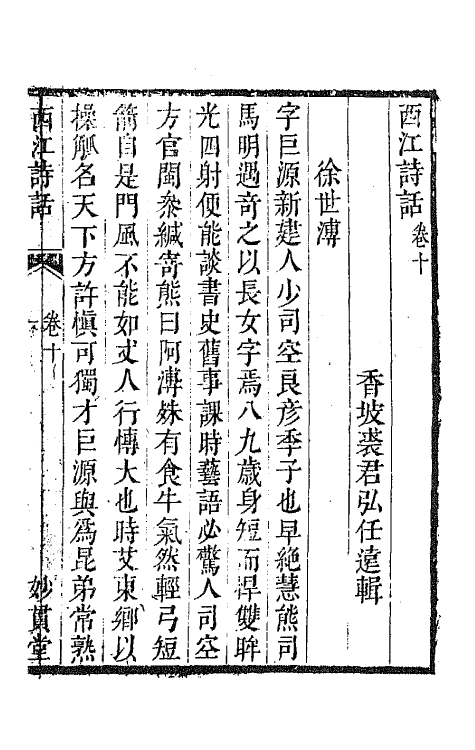 西江詩話 卷十
香坡裘君弘任遠輯
徐世溥
字巨源新建人少司空良彦季子也早絕慧熊司
馬明遇奇之以長女字焉八九歲身短而悍雙眸
光四射便能談書史舊事課時藝語必驚人司空
方官閩泰緘寄熊曰阿溥姝有食牛氣然輕弓短
箭自是門風不能如丈人行慱大也時艾東鄉以
操觚名天下方許愼可獨才巨源與爲昆弟常熟
西江詩話 卷十 一 妙貫堂